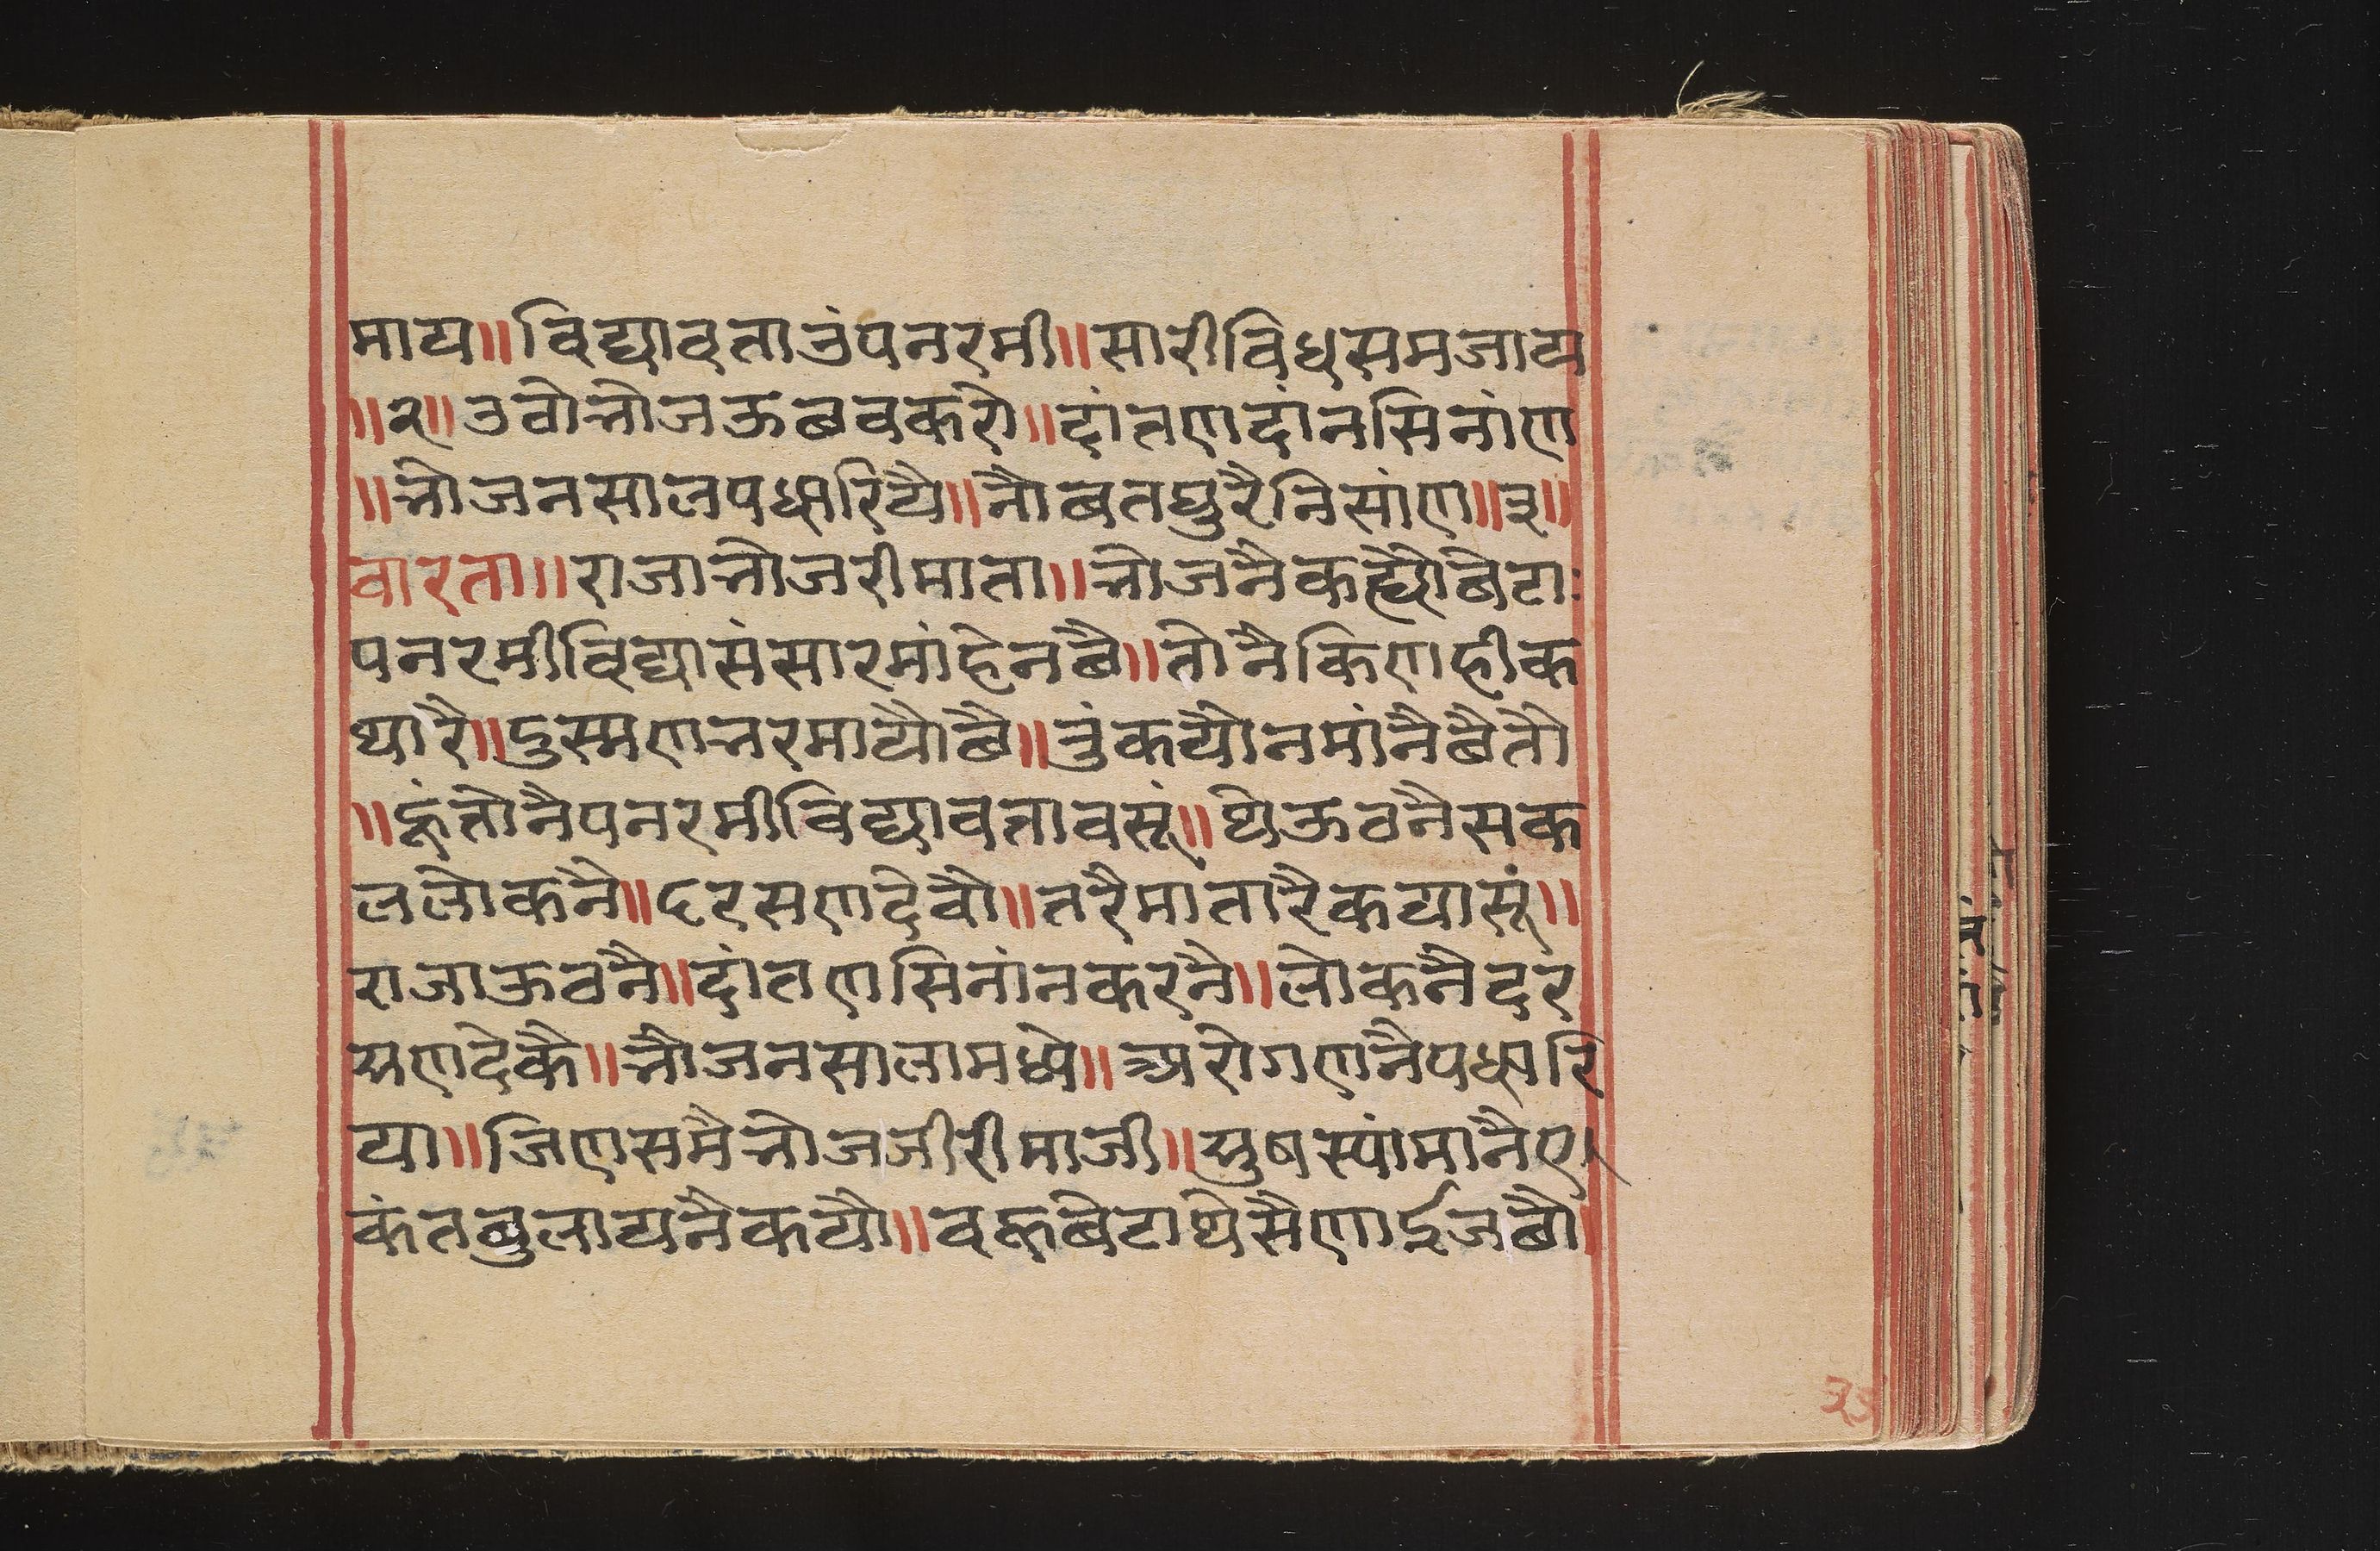 माय॥विद्यावताउंपनरमी॥सारीविधसमजाय
॥२॥उवोभोजऊबवकरो॥दांतणदांनसिनांण
॥भोजनसालपधारियै॥नौबतघुरैनिसांण॥३॥
वारता॥राजाभोजरीमाता॥भोजनैकह्यौबेटाः
पनरमीविद्यासंसारमांहेनछै॥तोनैकिणहीक
थारै॥दुस्मणभरमायौछै॥उंकयौनमांनैछैतौ
॥हूंतोनैपनरमीविद्यावतावसूं॥थेऊठनैसक
ललोकनै॥दरसणदेवौ॥तरैमातारैकयासूं॥
राजाऊठनै॥दांतणसिनांनकरनै॥लोकनैदर
सणदेकै॥भोजनसालामध्ये॥अरोगणनैपधारि
या॥जिणसमैभोजजीरीमाजी॥मुषस्यांमानैए
कंतबुलायनैकयौ॥वहुबेटाथेसैणाईजछौ